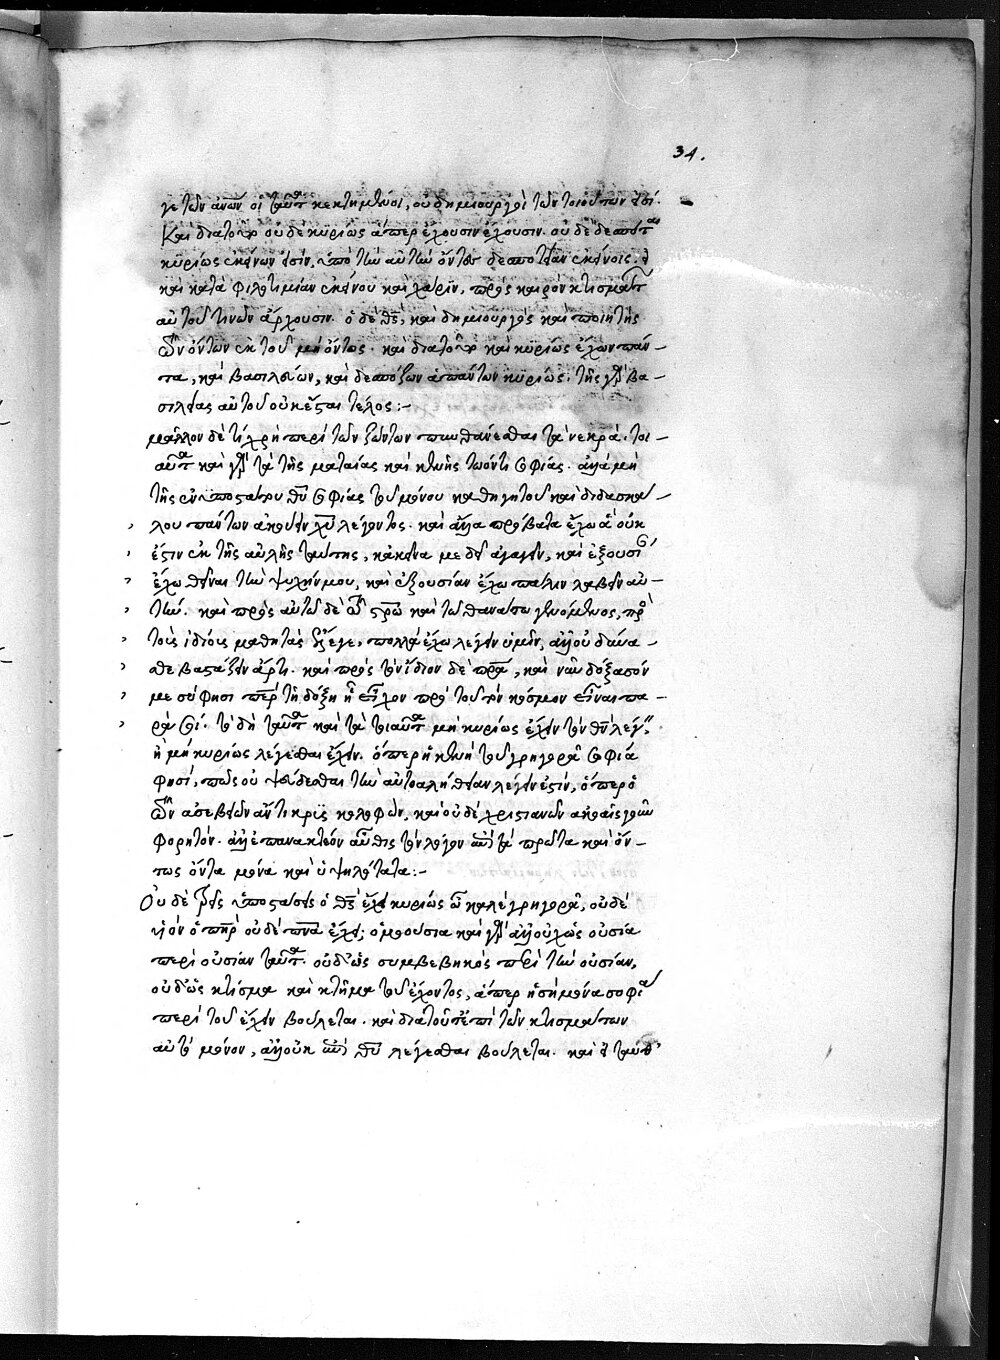 34.
γε τῶν ἀνῶν οἱ ταῦτα κεκτημένοι, οὐ δημιουργοὶ τῶν τοιούτων εἰσί.
Καὶ διατοῦτο οὐδὲ κυρίως ἅπερ ἔχουσιν ἔχουσιν. οὐδὲ δεσπόται
κυρίως ἐκείνων εἰσίν, ὑπὸ τὴν αὐτὴν ὄντες δεσποτείαν ἐκείνοις.
καὶ κατὰ φιλοτιμίαν ἐκείνου καὶ χάριν, πρὸς καιρὸν κτισμάτων
αὐτοῦ τινῶν ἄρχουσιν. ὁ δὲ θς, καὶ δημιουργὸς καὶ ποιητὴς
τῶν ὄντων ἐκ τοῦ μὴ ὄντος. καὶ διατοῦτο καὶ κυρίως ἔχων πάν-
τα, καὶ βασιλεύων, καὶ δεσπόζων ἁπάντων κυρίως. τῆς γὰρ βα-
σιλείας αὐτοῦ οὐκ ἔσται τέλος:-
μᾶλλον δὲ τί χρὴ περὶ τῶν ζώντων πυνθάνεσθαι τὰ νεκρά. τοι-
αῦτα καὶ γὰρ τὰ τῆς ματαίας καὶ κενῆς τωόντι σοφίας. ἀλλὰ μὴ
τῆς ἐνυποστάτου θυ σοφίας τοῦ μόνου καθηγητοῦ καὶ διδασκά-
λου πάντων ἀκούειν χυ λέγοντος. καὶ ἄλλα πρόβατα ἔχω ἃ οὐκ
ἔστιν ἐκ τῆς αὐλῆς ταύτης, κἀκεῖνα με δεῖ ἀγαγεῖν, καὶ ἐξουσίαν
ἔχω θεῖναι τὴν ψυχήν μου, καὶ ἐξουσίαν ἔχω πάλιν λαβεῖν αὐ-
τήν. καὶ πρὸς αὐτῶ δὲ τῶ στρω καὶ τῶ θανάτω γενόμενος, πρὸς
τοὺς ἰδίους μαθητὰς ἔλεγε, πολλὰ ἔχω λέγειν ὑμῖν, ἀλλ' οὐ δύνα-
σθε βαστάζειν ἄρτι. καὶ πρὸς τὸν ἴδιον δὲ πρα, καὶ νῦν δόξασόν
με σύ φησι περ τῆ δόξη ἧ εἶχον πρὸ τοῦ τὸν κόσμον εἶναι πα-
ρὰ σοί. τὸ δὴ ταῦτα καὶ τὰ τοιαῦτα μὴ κυρίως ἔχειν τὸν θν λέγειν
ἢ μὴ κυρίως λέγεσθαι ἔχειν. ὅπερ ἡ κενὴ τοῦ γρηγορᾶ σοφία
φησί, πῶς οὐ ψεύδεσθαι τὴν αὐτοαλήθειαν λέγειν ἐστίν, ὅπερ ὁ
τῶν ἀσεβειῶν ἄντικρυς κολοφών, καὶ οὐδὲ χριστιανῶν ἀκοαῖς γοῦν
φορητόν. ἀλλ' ἐπανακτέον αὖθις τὸν λόγον ἐπὶ τὰ πρῶτα καὶ ὄν-
τως ὄντα μόνα καὶ ὑψηλότατα:-
Οὐδὲ τρεῖς ὑποστάσεις ὁ θς ἔχει κυρίως ὦ καλὲ γρηγορᾶ, οὐδὲ
υἱὸν ὁ πηρ οὐδὲ πνα ἔχει; ὁμοούσια καὶ γὰρ ἀλλ' οὐχ ὡς οὐσία
περὶ οὐσίαν ταῦτα. οὐδ' ὡς συμβεβηκὸς περὶ τὴν οὐσίαν,
οὐδ' ὡς κτίσμα καὶ κτῆμα τοῦ ἔχοντος, ἅπερ ἡ σὴ μόνα σοφία
περὶ τοῦ ἔχειν βούλεται. καὶ διατοῦτ' ἐπὶ τῶν κτισμάτων
αὐτὸ μόνον, ἀλλ' οὐκ ἐπὶ θυ λέγεσθαι βούλεται.